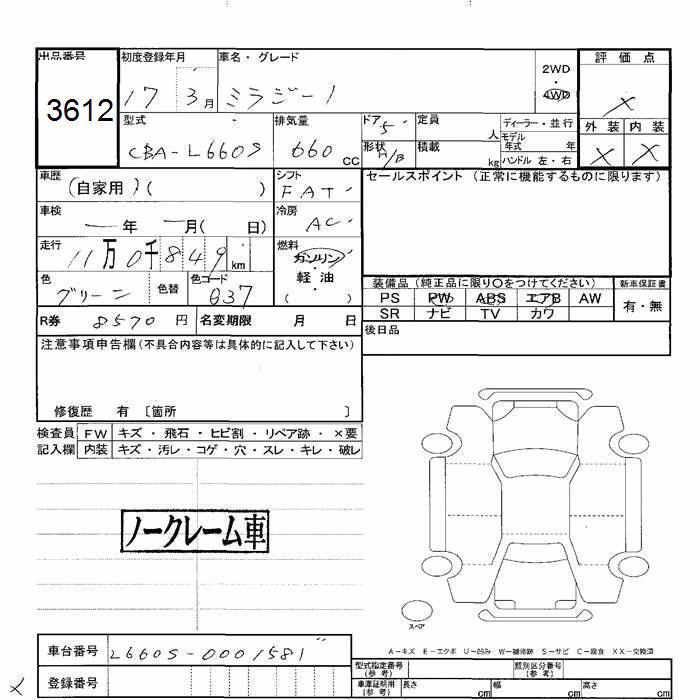 出品番号 初度登録年月 車名・グレード 評価点
3612 17 3月 ミラジーノ 2WD
4WD
X
型式 排気量 ドア 5 定員 人 ディーラー・並行 外装 内装
CBA-L660S 660 CC 形状 H/B 積載 kg モデル年式 年
ハンドル 左・右 X X
車歴 (自家用)( ) シフト FAT セールスポイント (正常に機能するものに限ります)
車検 ー年 ー月( 日) 冷房 AC
走行 11万0千849km 燃料 ガソリン
軽油
( )
色 グリーン 色替 色コード G37 装備品 (純正品に限り○をつけてください) 新車保証書
PS PW ABS エアB AW 有・無
SR ナビ TV カワ
R券 8570円 名変期限 月 日 後日品
注意事項申告欄(不具合内容等は具体的に記入して下さい)
修復歴 有 〔箇所 〕
検査員 FW キズ・飛石・ヒビ割・リペア跡・×要
記入欄 内装 キズ・汚レ・コゲ・穴・スレ・キレ・破レ
ノークレーム車
スペア
A-キズ E-エクボ U-凹み W-補修跡 S-サビ C-腐食 XX-交換済
車台番号 L660S-0001581 型式指定番号(参考) 類別区分番号(参考)
X 登録番号 車庫証明用(参考) 長さ cm 幅 cm 高さ cm